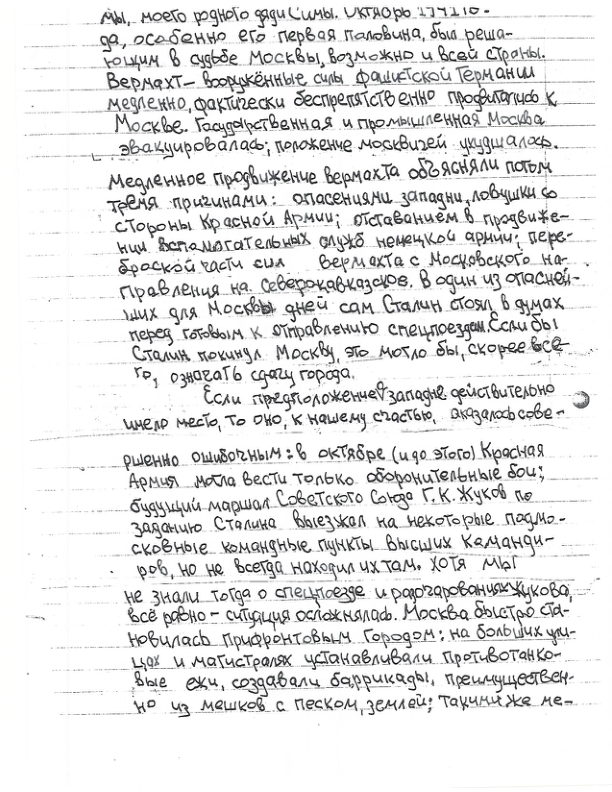 мы, моего родного дяди Симы. Октябрь 1941го-
да, особенно его первая половина, был реша-
ющим в судьбе Москвы, возможно и всей страны.
Вермахт – вооружённые силы фашистской Германии
медленно, фактически беспрепятственно продвигались к
Москве. Государственная и промышленная Москва
эвакуировалась; положение москвичей ухудшалось.
Медленное продвижение вермахта объясняли потом
тремя причинами: опасениями западни, ловушки со
стороны Красной Армии; отставанием в продвиже-
нии вспомогательных служб немецкой армии; пере-
броской части сил вермахта с Московского на-
правления на Северокавказское. В один из опасней-
ших для Москвы дней сам Сталин стоял в думах
перед готовым к отправлению спецпоездом. Если бы
Сталин покинул Москву, это могло бы, скорее все-
го, означать сдачу города.
Если предположение о западне действительно
имело место, то оно, к нашему счастью, оказалось сове-
ршенно ошибочным: в октябре (и до этого) Красная
Армия могла вести только оборонительные бои;
будущий маршал Советского Союза Г.К. Жуков по
заданию Сталина выезжал на некоторые подмо-
сковные командные пункты высших команди-
ров, но не всегда находил их там. Хотя мы
не знали тогда о спецпоезде и разочарованиях Жукова,
всё равно – ситуация осложнялась. Москва быстро ста-
новилась прифронтовым городом: на больших ули-
цах и магистралях устанавливали противотанко-
вые ежи, создавали баррикады, преимуществен-
но из мешков с песком, землей; такими же ме-